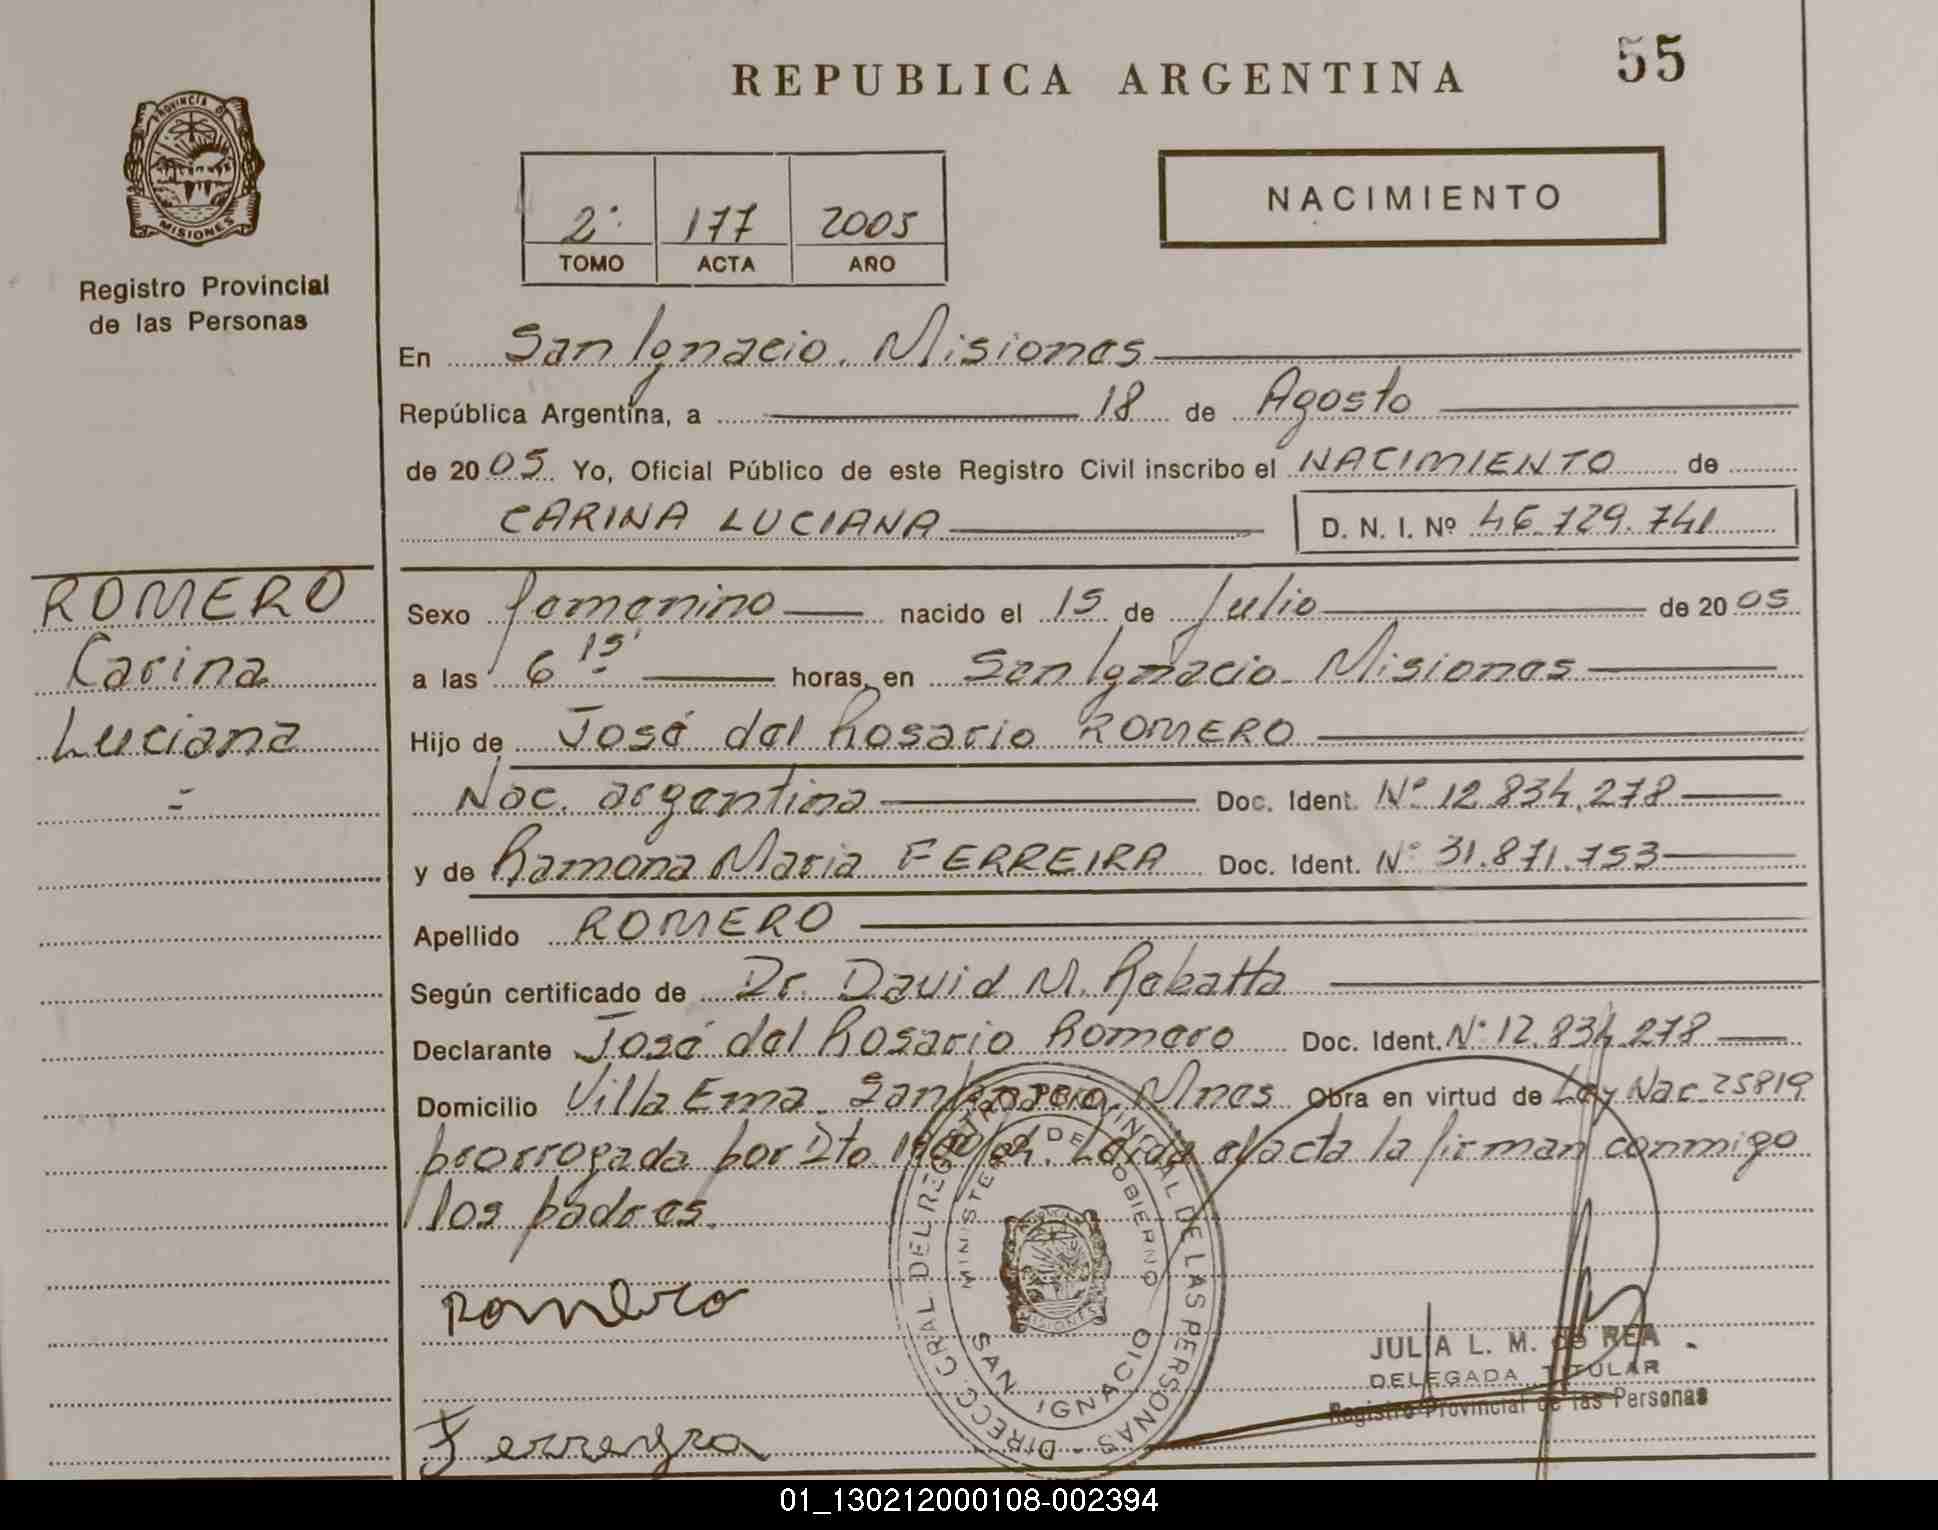 55
REPUBLICA ARGENTINA
PROVINCIA DE
MISIONES
Registro Provincial
de las Personas
2º 177 2005
TOMO ACTA AÑO
NACIMIENTO
En San Ignacio. Misiones
República Argentina, a 18 de Agosto
de 2005 Yo, Oficial Público de este Registro Civil inscribo el NACIMIENTO de
CARINA LUCIANA D. N. I. Nº 46.729.741
ROMERO
Carina
Luciana
Sexo femenino nacido el 15 de Julio de 2005
a las 6 15' horas, en San Ignacio. Misiones
Hijo de José del Rosario ROMERO
Nac. argentina Doc. Ident. Nº 12.834.278
y de Ramona Maria FERREIRA Doc. Ident. Nº 31.871.753
Apellido ROMERO
Según certificado de Dr. David M. Rabatta
Declarante José del Rosario Romero Doc. Ident. Nº 12.834.278
Domicilio Villa Ema. San Ignacio. Mnes Obra en virtud de Ley Nac. 25819
prorrogada por Dto. Leída el acta la firman conmigo
los padres.
Romero
Ferreyra
DIRECC. GRAL. DEL REGISTRO PROVINCIAL DE LAS PERSONAS -
MINISTERIO DE GOBIERNO
MISIONES
SAN IGNACIO
JULIA L. M. de REA
DELEGADA TITULAR
Registro Provincial de las Personas
01_130212000108-002394